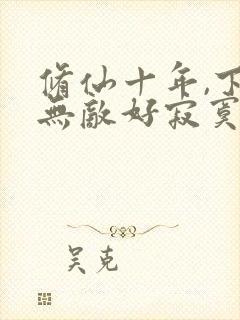 脩仙十年,下
無敵好寂寞
吴克